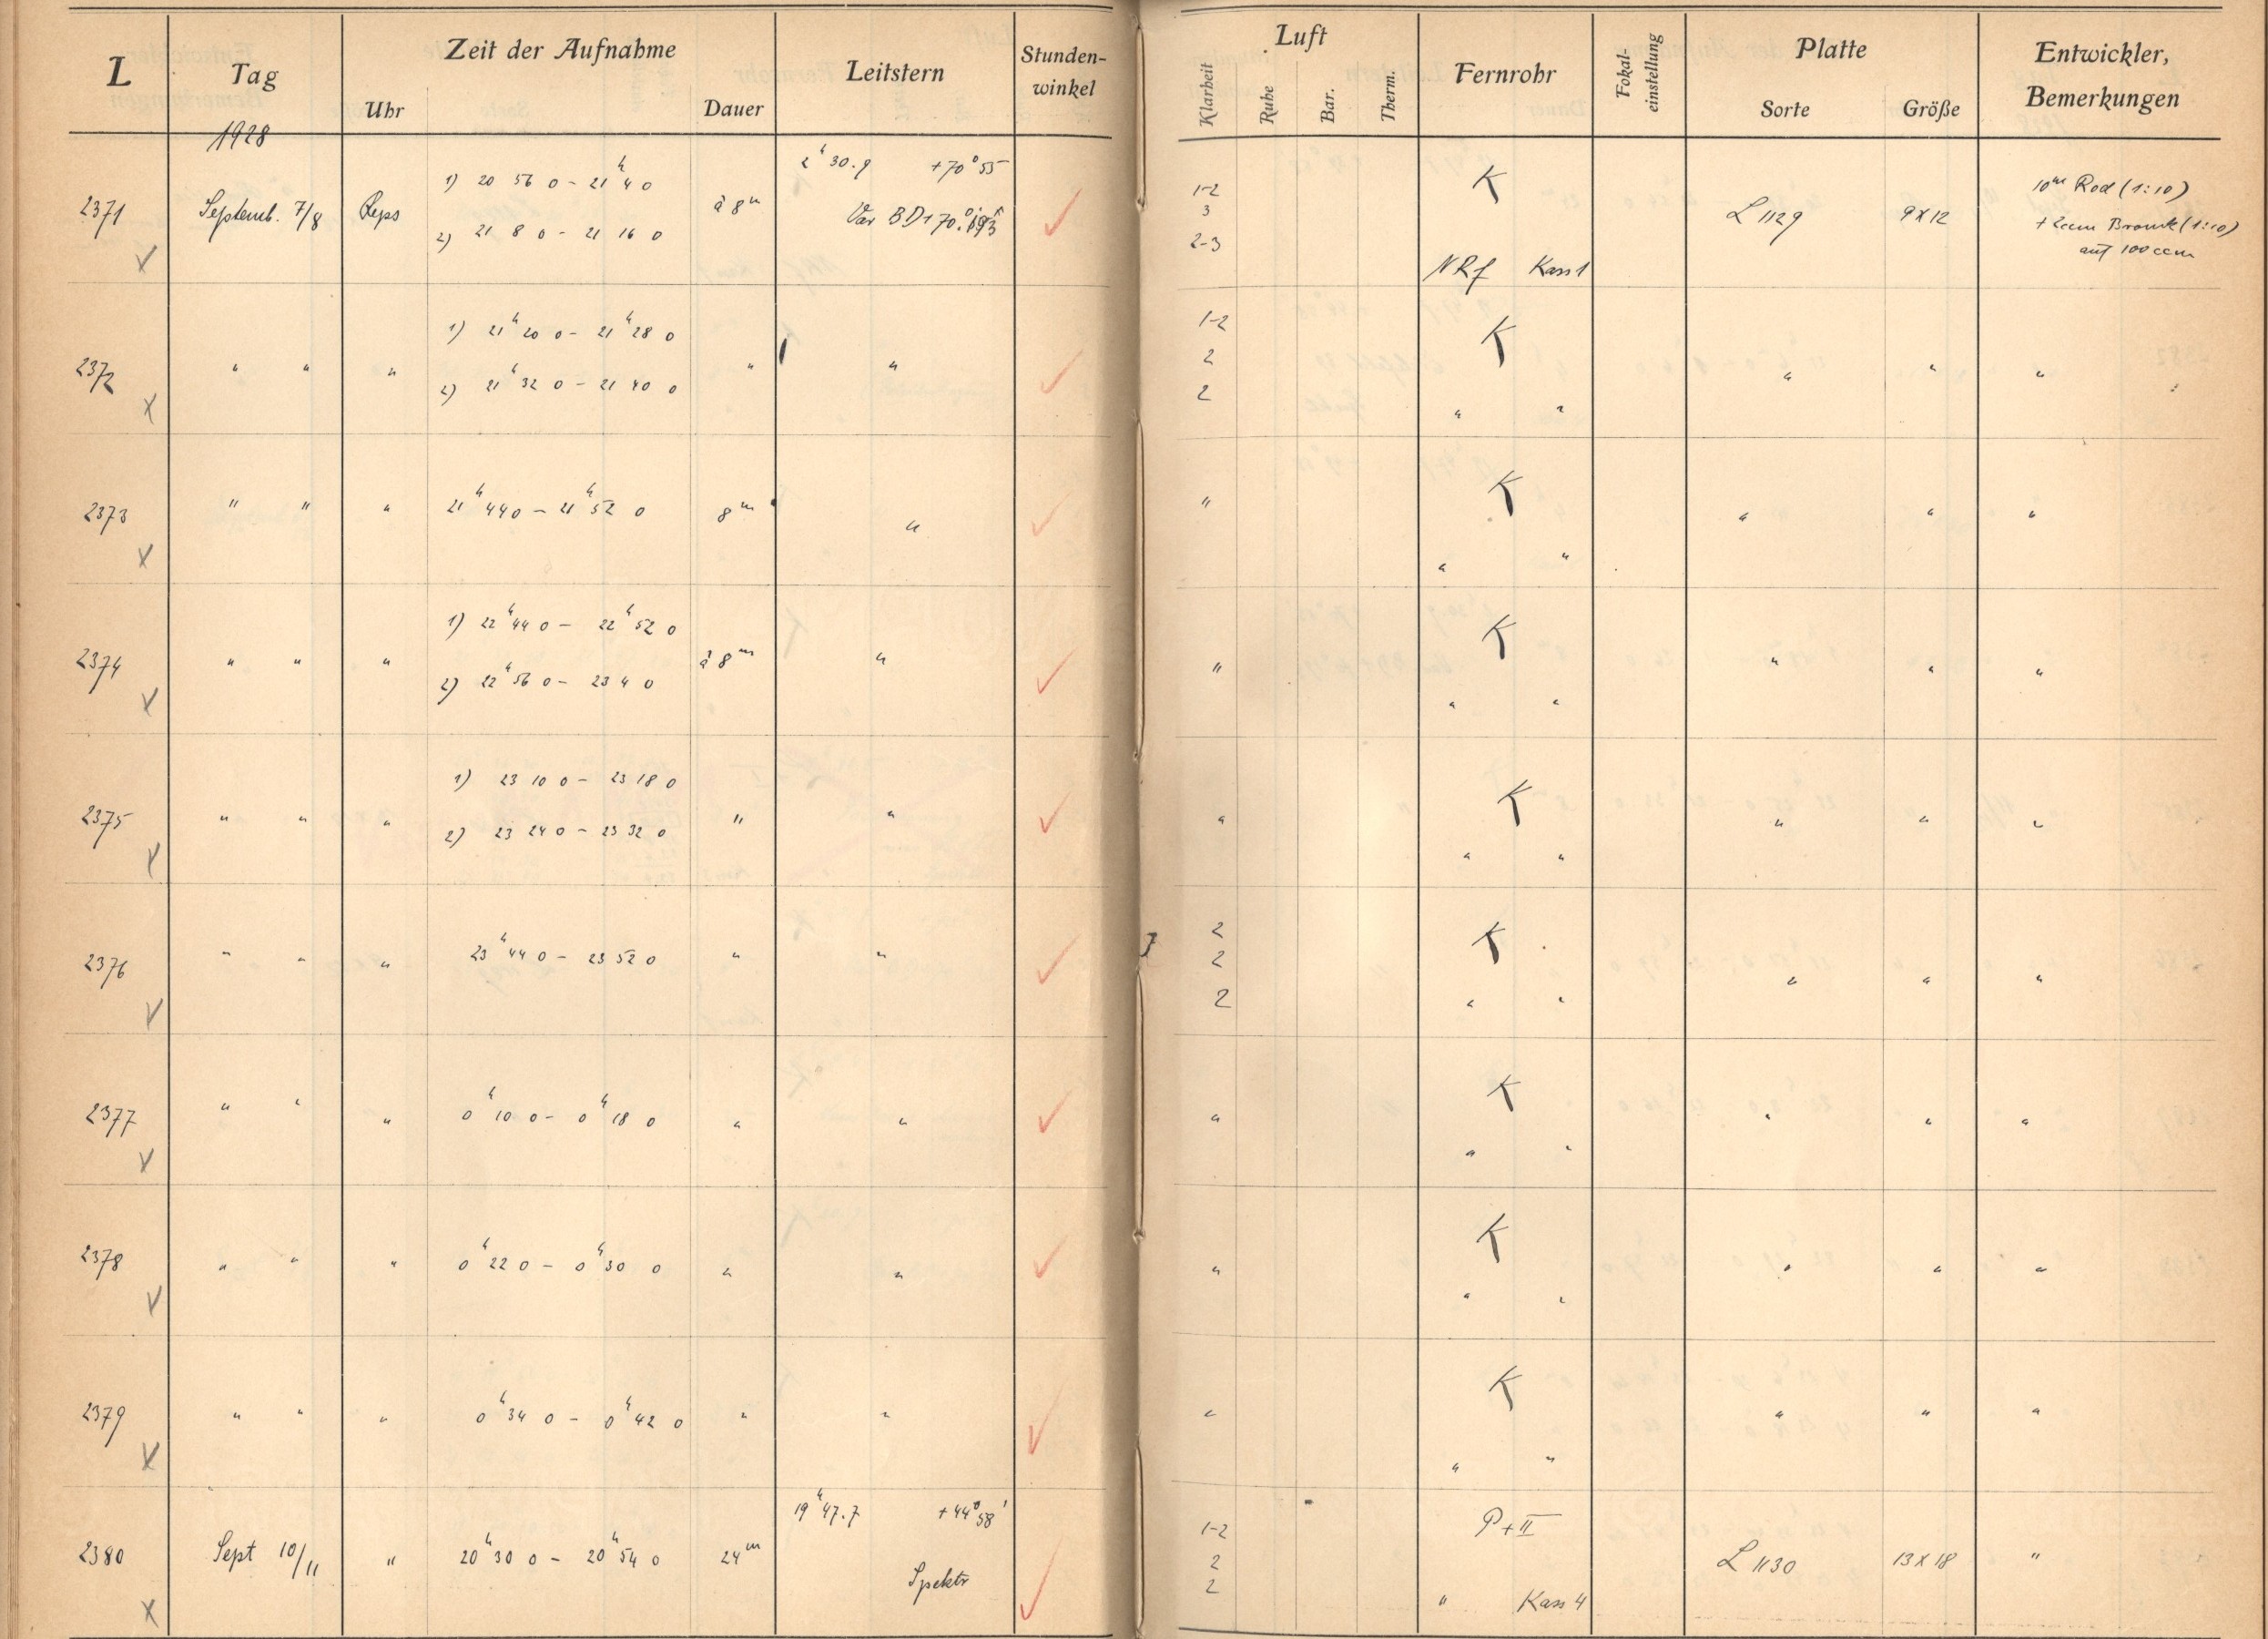 L Tag Zeit der Aufnahme Leitstern Stunden-winkel Luft Fernrohr Fokal-einstellung Platte Entwickler, Bemerkungen
Uhr Dauer Klarheit Ruhe Bar. Therm. Sorte Größe
1928
2371 Septemb. 7/8 Reps 1) 20 56 0 - 21ʰ 4 0 à 8ᵐ 2ʰ 30.9 +70° 55 1-2 K L 1129 9X12 10ᵐ Rod (1:10)
2) 21 8 0 - 21 16 0 Var BD+70. 3 + 2ccm Bromk (1:10)
2-3 auf 100 ccm
V NRf Kass 1
2372 " " " 1) 21ʰ 20 0 - 21ʰ 28 0 " " 1-2 K " " "
2) 21ʰ 32 0 - 21 40 0 2
X 2 " "
2373 " " " 21ʰ 44 0 - 21ʰ 52 0 8ᵐ " " K " " "
X " "
2374 " " " 1) 22ʰ 44 0 - 22ʰ 52 0 à 8ᵐ " " K " " "
2) 22ʰ 56 0 - 23 4 0
V " "
2375 " " " 1) 23 10 0 - 23 18 0 " " " K " " "
2) 23 24 0 - 23 32 0
V " "
2376 " " " 23ʰ 44 0 - 23 52 0 " " 2 K " " "
2
V 2 " "
2377 " " " 0ʰ 10 0 - 0ʰ 18 0 " " " K " " "
V " "
2378 " " " 0ʰ 22 0 - 0ʰ 30 0 " " " K " " "
V " "
2379 " " " 0ʰ 34 0 - 0ʰ 42 0 " " " K " " "
V " "
2380 Sept 10/11 " 20ʰ 30 0 - 20ʰ 54 0 24ᵐ 19ʰ 47.7 +44° 58' 1-2 P+II L 1130 13X18 "
Spektr 2
X 2 " Kass 4